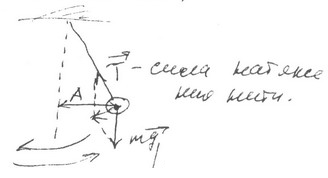 T⃗ - сила натяже
ния нити.
A
mg⃗